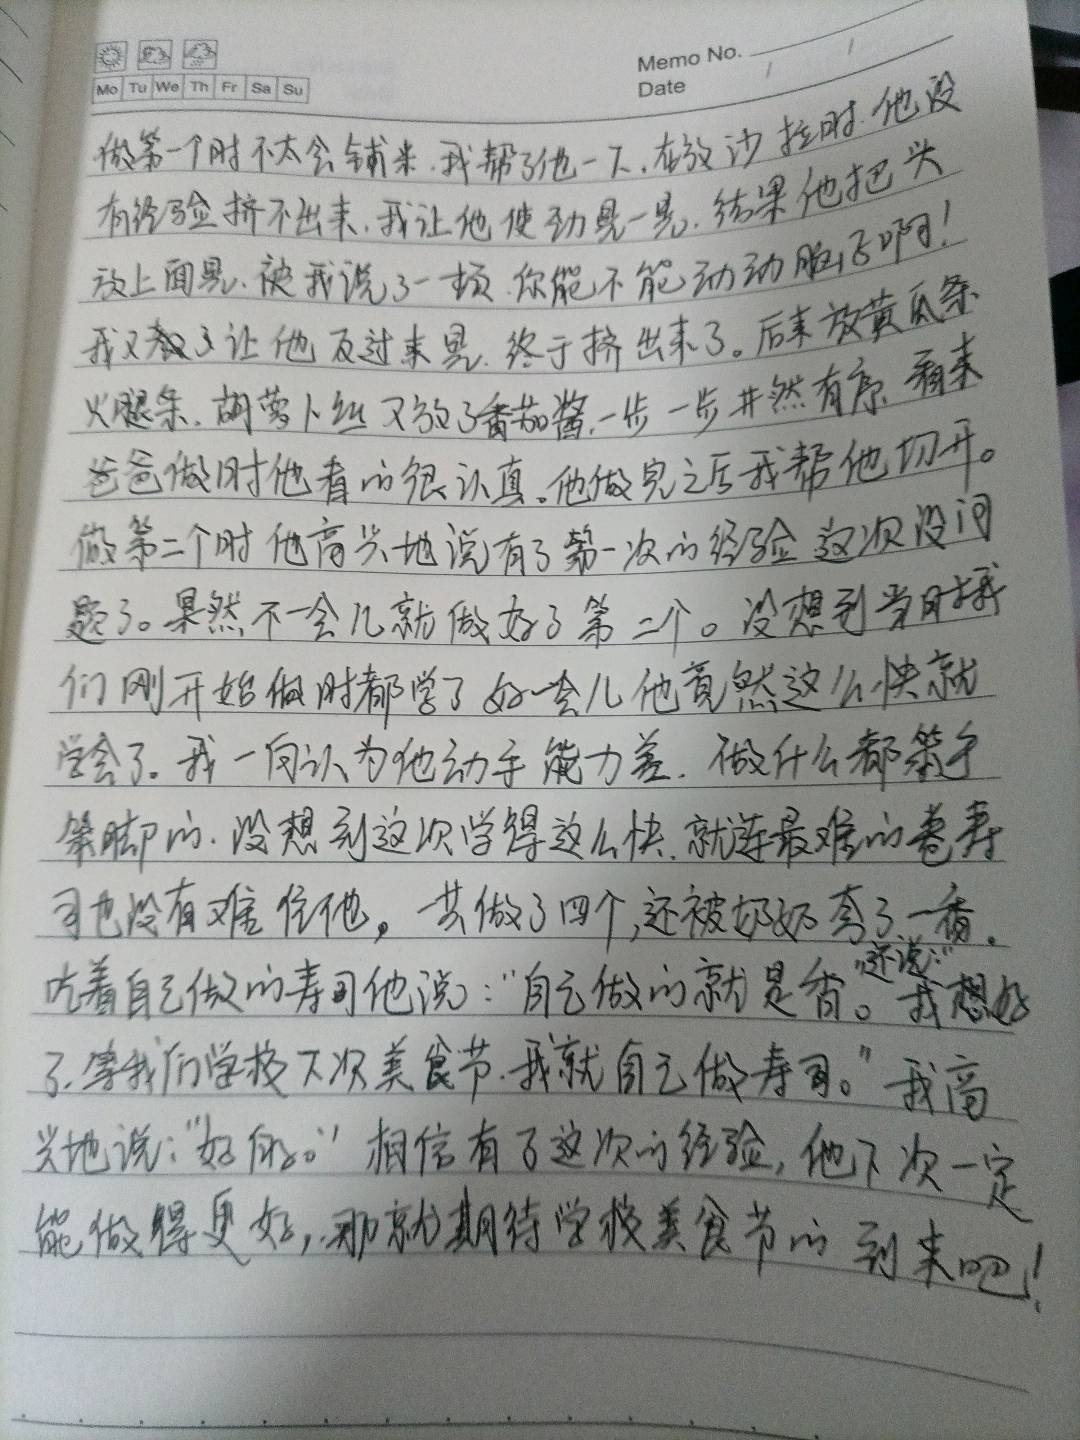 Memo No.
Mo Tu We Th Fr Sa Su
Date
做第一个时不太会铺米.我帮了他一下.在放沙拉时.他没
有经验挤不出来.我让他使劲晃一晃.结果他把头
放上面晃.被我说了一顿.你能不能动动脑子啊!
我又教了让他反过来晃.终于挤出来了。后来放黄瓜条
火腿条.胡萝卜丝又放了番茄酱.一步一步井然有序.看来
爸爸做时他看的很认真。他做完之后我帮他切开。
做第二个时他高兴地说有了第一次的经验这次没问
题了。果然不一会儿就做好了第二个。没想到当时我
们刚开始做时都学了好一会儿他竟然这么快就
学会了。我一向认为他动手能力差.做什么都笨手
笨脚的.没想到这次学得这么快.就连最难的卷寿
司也没有难住他。一共做了四个,还被奶奶夸了一番.
吃着自己做的寿司他说:"自己做的就是香。"还说:"我想好
了.等我们学校下次美食节.我就自己做寿司。"我高
兴地说:"好的。"相信有了这次的经验,他下次一定
能做得更好,那就期待学校美食节的到来吧!